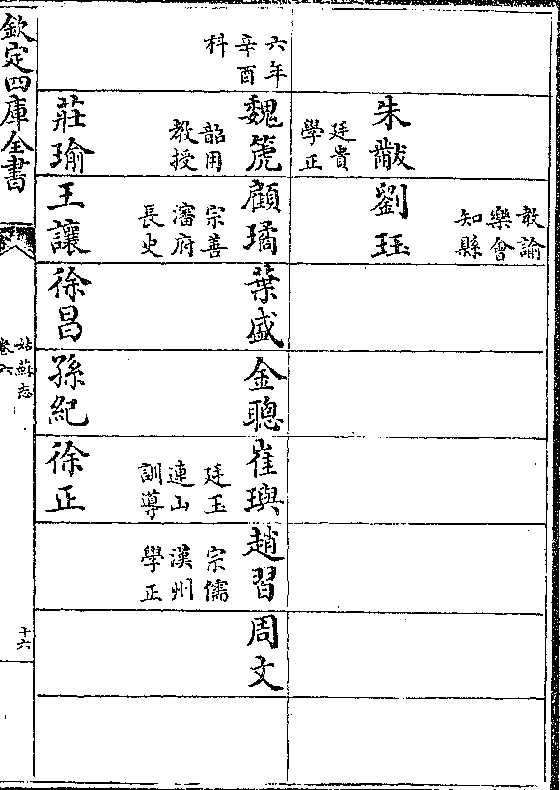 教諭
樂會
知縣
朱黻
劉珏
廷貴
學正
六年
辛酉
科
魏箎
顧璚
葉盛
金聰
崔璵
趙習
周文
韶用
教授
宗善
瀋府
長史
廷玉
連山
訓導
宗儒
漢州
學正
莊瑜
王讓
徐昌
孫紀
徐正
欽定四庫全書
姑蘇志
卷六
十六